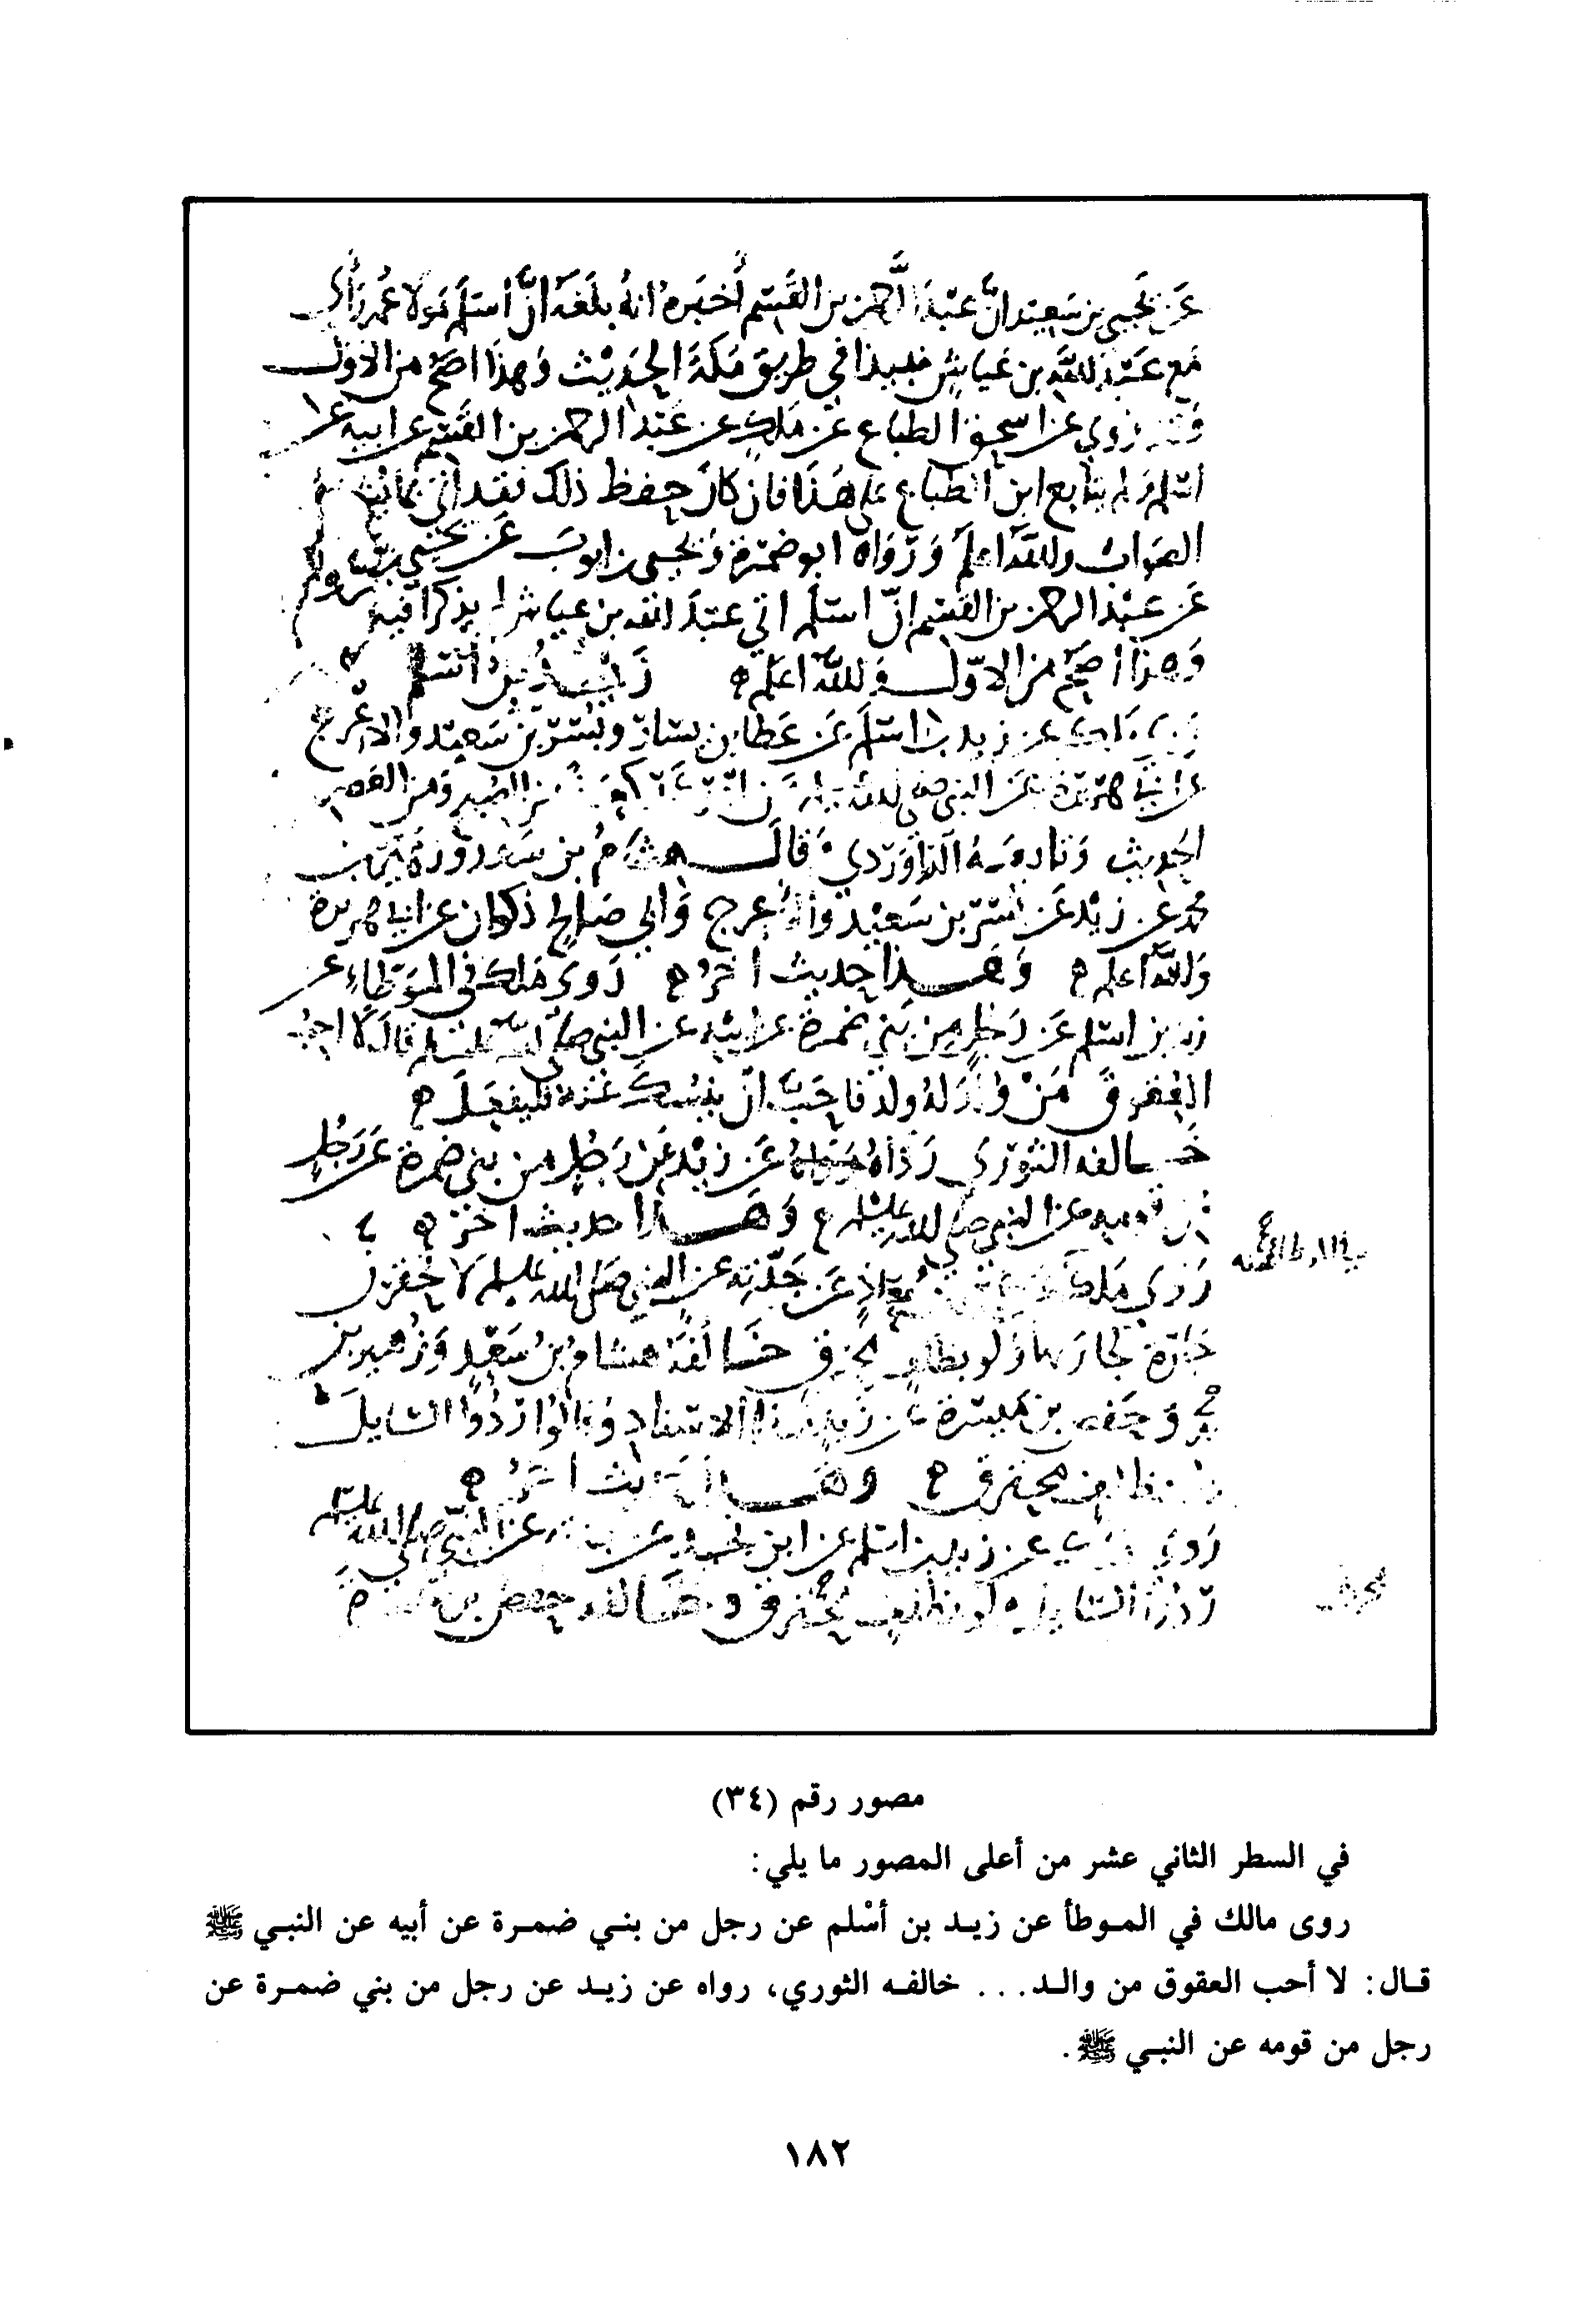 عن يحيى بن سعيد ان عبد الرحمن بن القسم أخبره انه بلغه ان اسلم مولا عمر رأى
مع عبد الله بن عياش نبيذا في طريق مكة الحديث وهذا اصح من الاول
وقد روي عن اسحق الطباع عن ملك عن عبد الرحمن بن القسم عن ابيه عن
اسلم ولم يتابع ابن الطباع على هذا فان كان حفظ ذلك فقد اتى
الصواب والله اعلم ورواه ابو ضمرة ويحيى بن ايوب عن يحيى بن
عن عبد الرحمن بن القسم ان اسلم اتى عبد الله بن عياش يذكرا فيه
وهذا اصح من الاول والله اعلم ه زيد بن أسلم
عن زيد بن اسلم عن عطا بن يسار وبسر بن سعيد والاعرج
عن ابي هريرة عن النبي صلى الله من الصبح ومن العصر
الحديث الدراوردي قال هشام بن سعد
محمد عن زيد عن بسر بن سعيد والاعرج وابي صالح ذكوان عن ابي هريرة
والله اعلم ه وهذا حديث اخر ه روى ملك في الموطاء عن
زيد بن اسلم عن رجل من بني ضمرة عن ابيه عن النبي صلى الله عليه وسلم قال لا احب
العقوق من ولد له ولد فاحب ان ينسك عنه فليفعل ه
خالفه الثوري رواه عن زيد عن رجل من بني ضمرة عن رجل
من قومه عن النبي صلى الله عليه وسلم ه وهذا حديث اخر ه
روي ملك معاذ عن جدته عن النبي صلى الله عليه وسلم لا تحقرن
جارة لجارتها ولو بظلف محرق خالفه هشام بن سعد وزهير بن
محمد وحفص بن ميسرة عن زيد الاسناد وقالوا ردوا السايل
ولو بظلف محترق ه وهذا حديث اخر ه
روى عن زيد بن اسلم عن ابن بجيد عن عن النبي صلى الله عليه وسلم
ردوا السايل ولو بظلف محترق وخالفه حفص بن
مصور رقم (٣٤)
في السطر الثاني عشر من أعلى المصور ما يلي:
روى مالك في الموطأ عن زيد بن أسْلم عن رجل من بني ضمرة عن أبيه عن النبي ﷺ
قال: لا أحب العقوق من والد... خالفه الثوري، رواه عن زيد عن رجل من بني ضمرة عن
رجل من قومه عن النبي ﷺ.
١٨٢